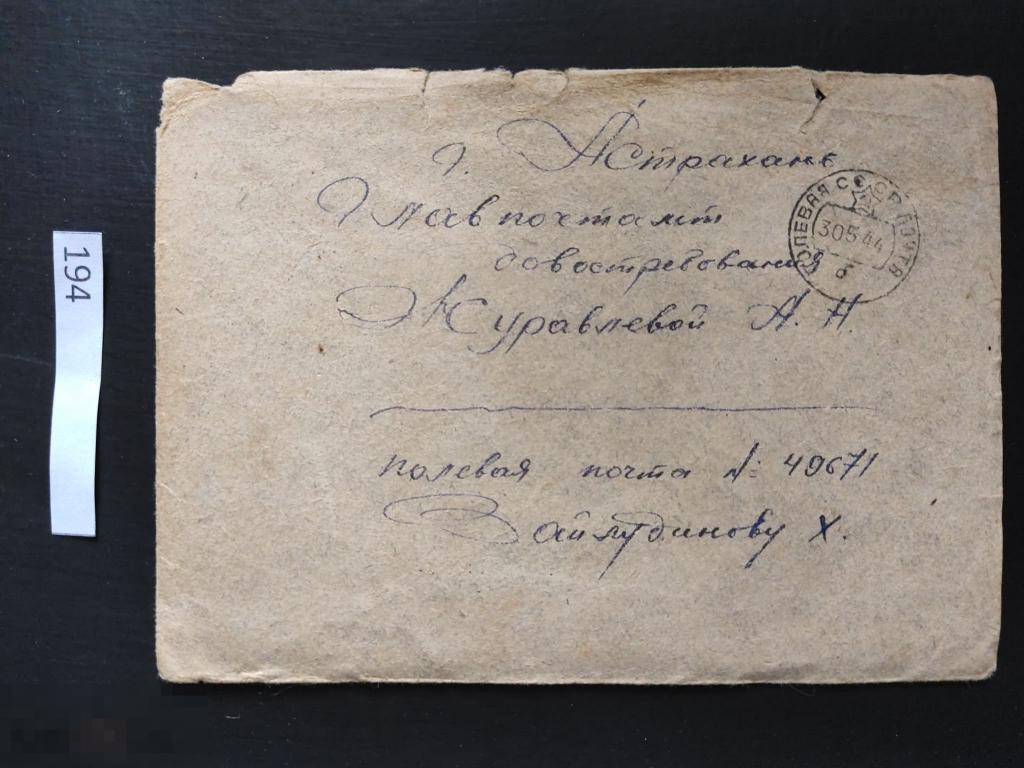 194
г. Астрахань
Главпочтамт
довостребования
Журавлевой А. Н.
ПОЛЕВАЯ СССР ПОЧТА
30544
полевая почта №: 49671
Зайлудинову Х.